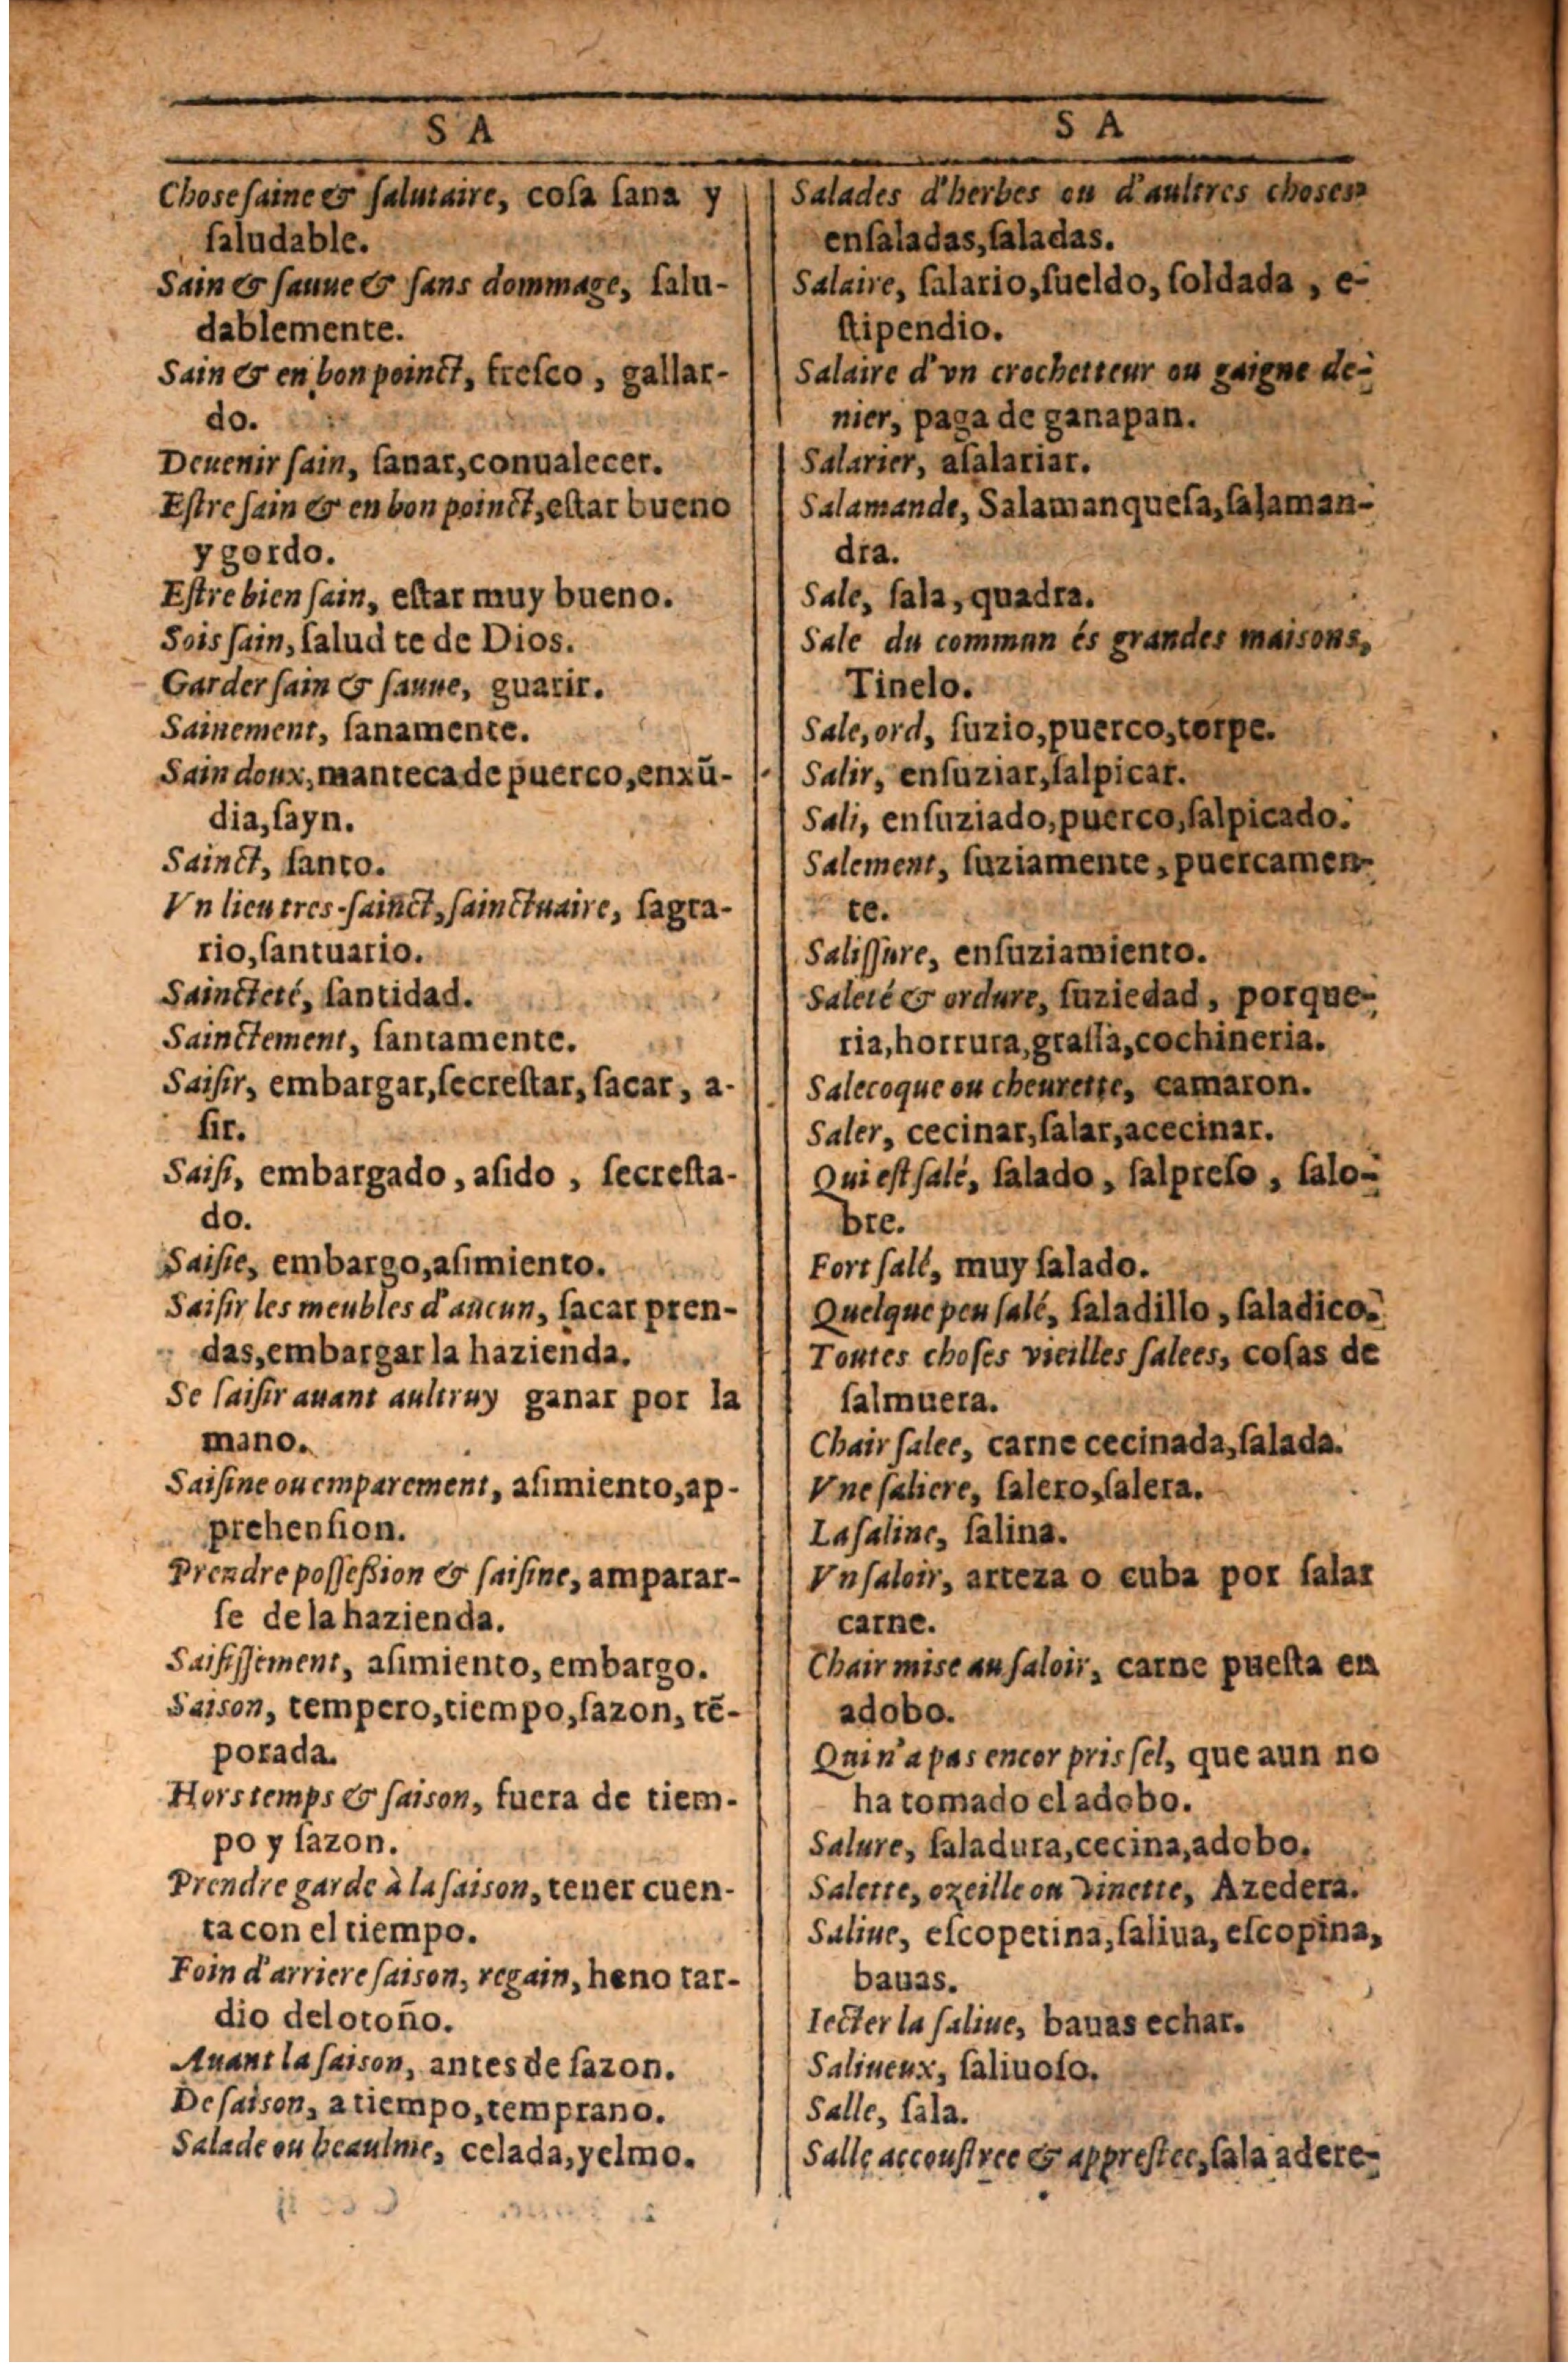 S A
Chose ſaine & ſalutaire, coſa ſana y
ſaludable.
Sain & ſauue & ſans dommage, ſalu-
dablemente.
Sain & en bon poinct, freſco, gallar-
do.
Deuenir ſain, ſanar, conualecer.
Eſtre ſain & en bon poinct, eſtar bueno
y gordo.
Eſtre bien ſain, eſtar muy bueno.
Sois ſain, ſalud te de Dios.
Garder ſain & ſauue, guarir.
Sainement, ſanamente.
Sain doux, manteca de puerco, enxũ-
dia, ſayn.
Sainct, ſanto.
Vn lieu tres-ſainct, ſainctuaire, ſagra-
rio, ſantuario.
Saincteté, ſantidad.
Sainctement, ſantamente.
Saiſir, embargar, ſecreſtar, ſacar, a-
ſir.
Saiſi, embargado, aſido, ſecreſta-
do.
Saiſie, embargo, aſimiento.
Saiſir les meubles d'aucun, ſacar pren-
das, embargar la hazienda.
Se ſaiſir auant aultruy ganar por la
mano.
Saiſine ou emparement, aſimiento, ap-
prehenſion.
Prendre poſſeſsion & ſaiſine, amparar-
ſe de la hazienda.
Saiſiſſement, aſimiento, embargo.
Saison, tempero, tiempo, ſazon, tẽ-
porada.
Hors temps & ſaison, fuera de tiem-
po y ſazon.
Prendre garde à la ſaison, tener cuen-
ta con el tiempo.
Foin d'arriere ſaison, regain, heno tar-
dio del otoño.
Auant la ſaison, antes de ſazon.
De ſaison, a tiempo, temprano.
Salade ou heaulme, celada, yelmo.
S A
Salades d'herbes ou d'aultres choses,
enſaladas, ſaladas.
Salaire, ſalario, ſueldo, ſoldada, e-
ſtipendio.
Salaire d'vn crochetteur ou gaigne de-
nier, paga de ganapan.
Salarier, aſalariar.
Salamande, Salamanqueſa, ſalaman-
dra.
Sale, ſala, quadra.
Sale du commun és grandes maisons,
Tinelo.
Sale, ord, ſuzio, puerco, torpe.
Salir, enſuziar, ſalpicar.
Sali, enſuziado, puerco, ſalpicado.
Salement, ſuziamente, puercamen-
te.
Saliſſure, enſuziamiento.
Saleté & ordure, ſuziedad, porque-
ria, horrura, graſſa, cochineria.
Salecoque ou cheurette, camaron.
Saler, cecinar, ſalar, acecinar.
Qui eſt ſalé, ſalado, ſalpreſo, ſalo-
bre.
Fort ſalé, muy ſalado.
Quelque peu ſalé, ſaladillo, ſaladico.
Toutes choſes vieilles ſalees, coſas de
ſalmuera.
Chair ſalee, carne cecinada, ſalada.
Vne ſaliere, ſalero, ſalera.
La ſaline, ſalina.
Vn ſaloir, arteza o cuba por ſalar
carne.
Chair mise au ſaloir, carne pueſta en
adobo.
Qui n'a pas encor pris ſel, que aun no
ha tomado el adobo.
Salure, ſaladura, cecina, adobo.
Salette, ozeille ou vinette, Azedera.
Saliue, eſcopetina, ſaliua, eſcopina,
bauas.
Iecter la ſaliue, bauas echar.
Saliueux, ſaliuoſo.
Salle, ſala.
Salle accouſtree & appreſtee, ſala adere-